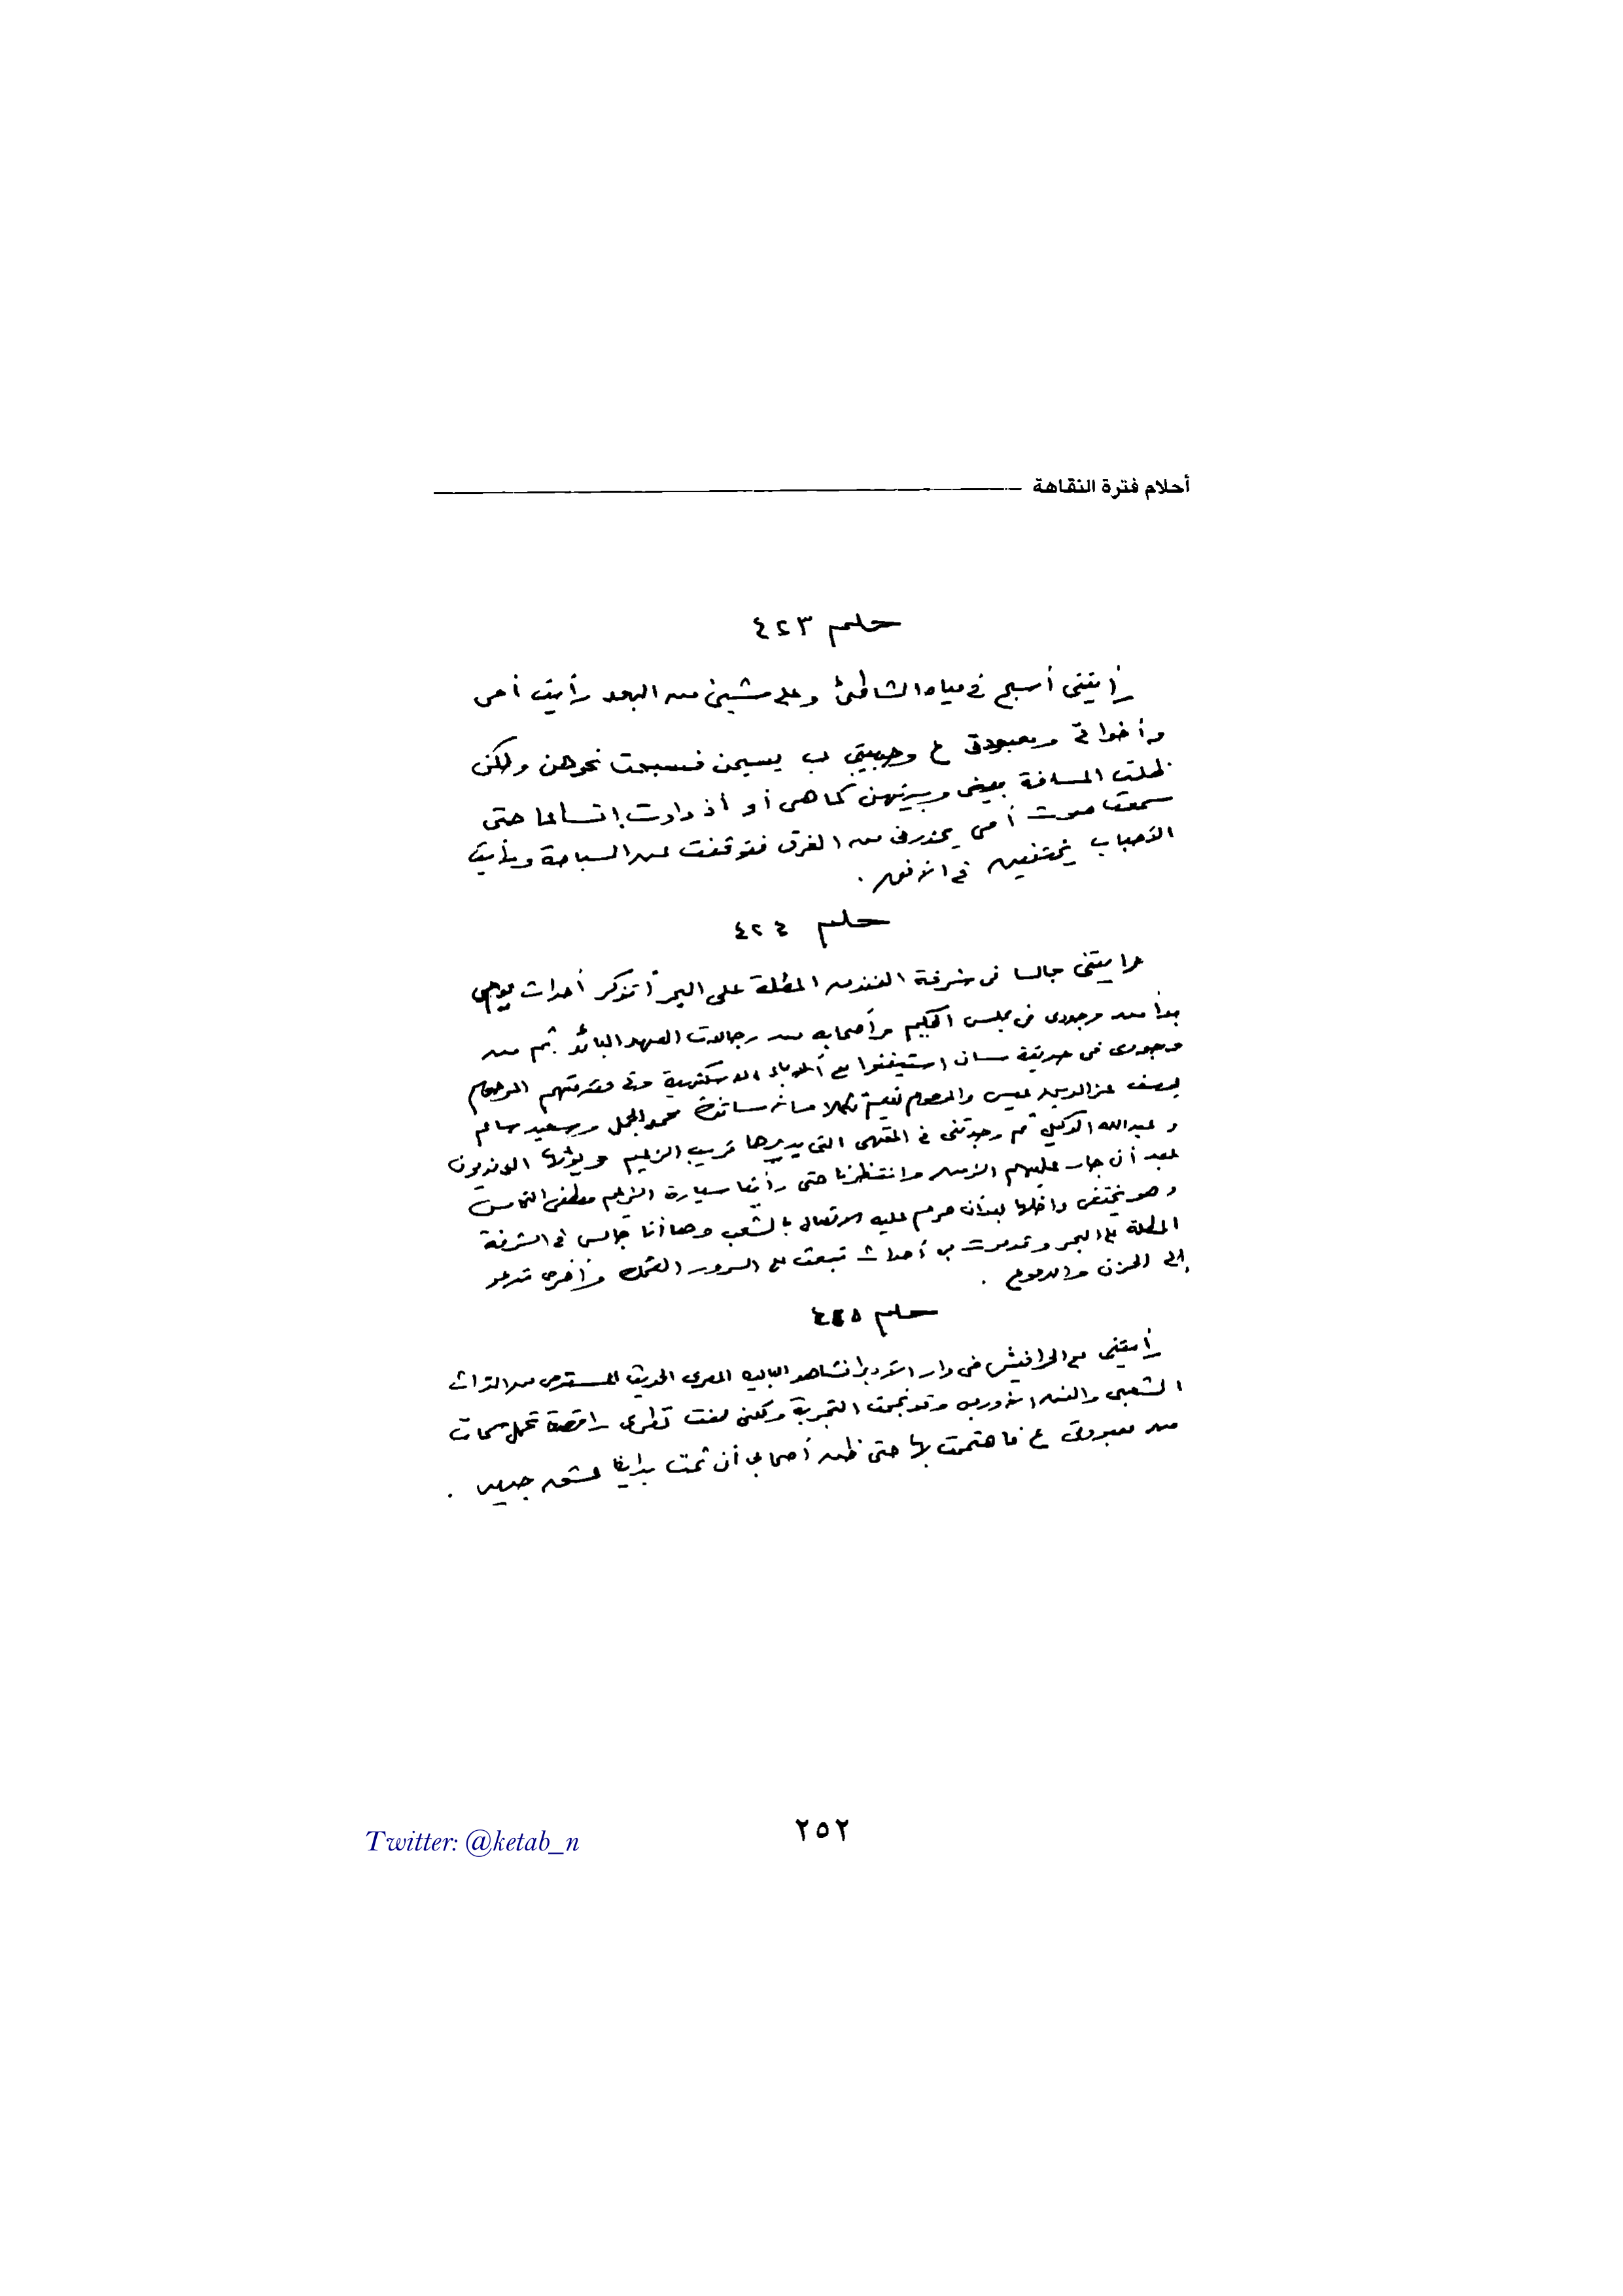 أحلام فترة النقاهة
حلم ٤٢٣
رأيتنى أسبح فى مياه الشاطئ وعلى من البعد رأيت أمى
وأخواتى ومعبودتى ع وحبيبتى ب يسبحن فسبحت نحوهن ولكن
ظلت المسافة بينى وبينهن كما هى أو أزدادت إتساعا حتى
سمعت صوت أمى يحذرنى من الغرق فتوقفت عن السباحة ورأيت
الأحباب يختفين فى الأفق .
حلم ٤٢٤
رأيتنى جالسا فى شرفة الفندق المطلة على البحر أتذكر أحداث يومى
بدأ من وجودى فى مجلس الحكيم وأصحابه من رجالات العهد البائد ثم من
وجودى فى حديقة سان استيفنوا مع أدباء الاسكندرية وفى مقدمتهم المرحوم
يوسف عز الدين عيسى والمرحوم نعيم تكلا محمد الجمل وسعيد سالم
و عبدالله الوكيل ثم وجدتنى فى المقهى التى يديرها قريب الزعيم و الوفديون
بعد أن جار عليهم الزمن وانتظرنا حتى رأينا سيارة الزعيم مصطفى النحاس
وهو يختفى داخلها بعد أن حرم عليه الاتصال بالشعب وها أنا جالس فى الشرفة
المطلة على البحر وقد مرت بى أحداث تبعث على السرور الضحك وأخرى تدعو
إلى الحزن والدموع .
حلم ٤٢٥
رأيتنى مع الحرافيش فى دار الأوبرا نشاهد الباليه المصرى الحديث المستوحى من التراث
الشعبى والفن الأوربى وقد نجحت التجربة ولكن لفت نظرى راقصة تحمل سمات
من معبودتى ع فاهتممت بها حتى ظن أصحابى أن ثمت بداية لعشق جديد .
٢٥٢
Twitter: @ketab_n